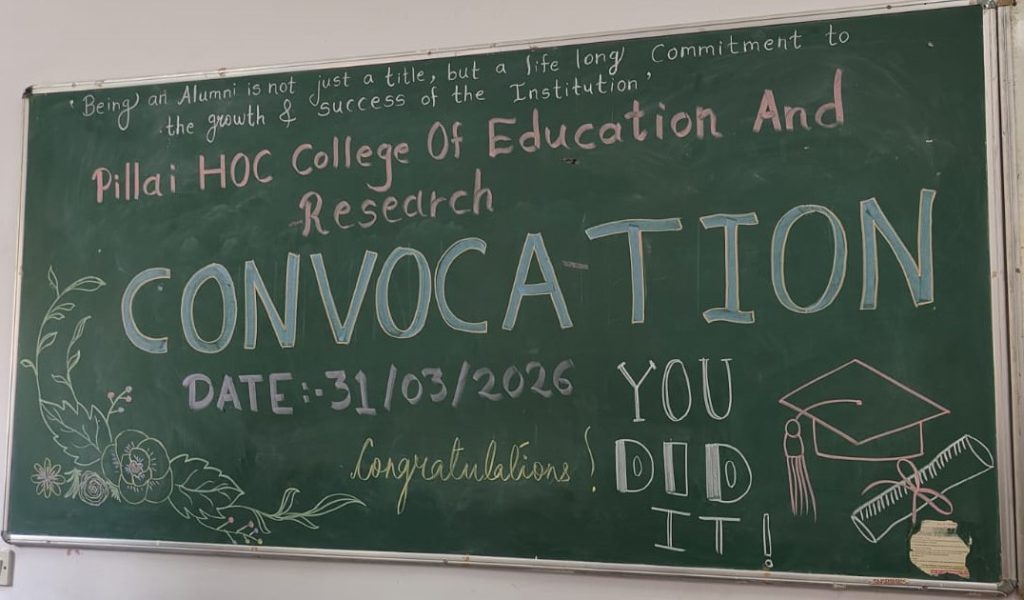 'Being an Alumni is not just a title, but a life long Commitment to
the growth & success of the Institution'
Pillai HOC College Of Education And
Research
CONVOCATION
DATE:-31/03/2026
Congratulations!
YOU
DID
IT!